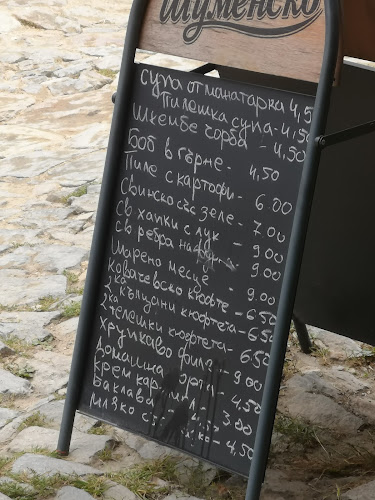 Шуменско
Супа от манатарки 4,5
Пилешка супа - 4,50
Шкембе чорба - 4,50
Боб в гърне - 4,50
Пиле с картофи - 6.00
Свинско със зеле - 7.00
Св хапки с лук - 9.00
Св ребра на - 9.00
Шарено месце - 9.00
Ковачевско кюфте - 6.50
2ка кълцани кюфтета - 6.50
2 телешки кюфтета - 6.50
Хрупкаво филе - 9.00
Домашна - 4,50
Крем кар - 3.00
Баклава
Мляко с - 4,50